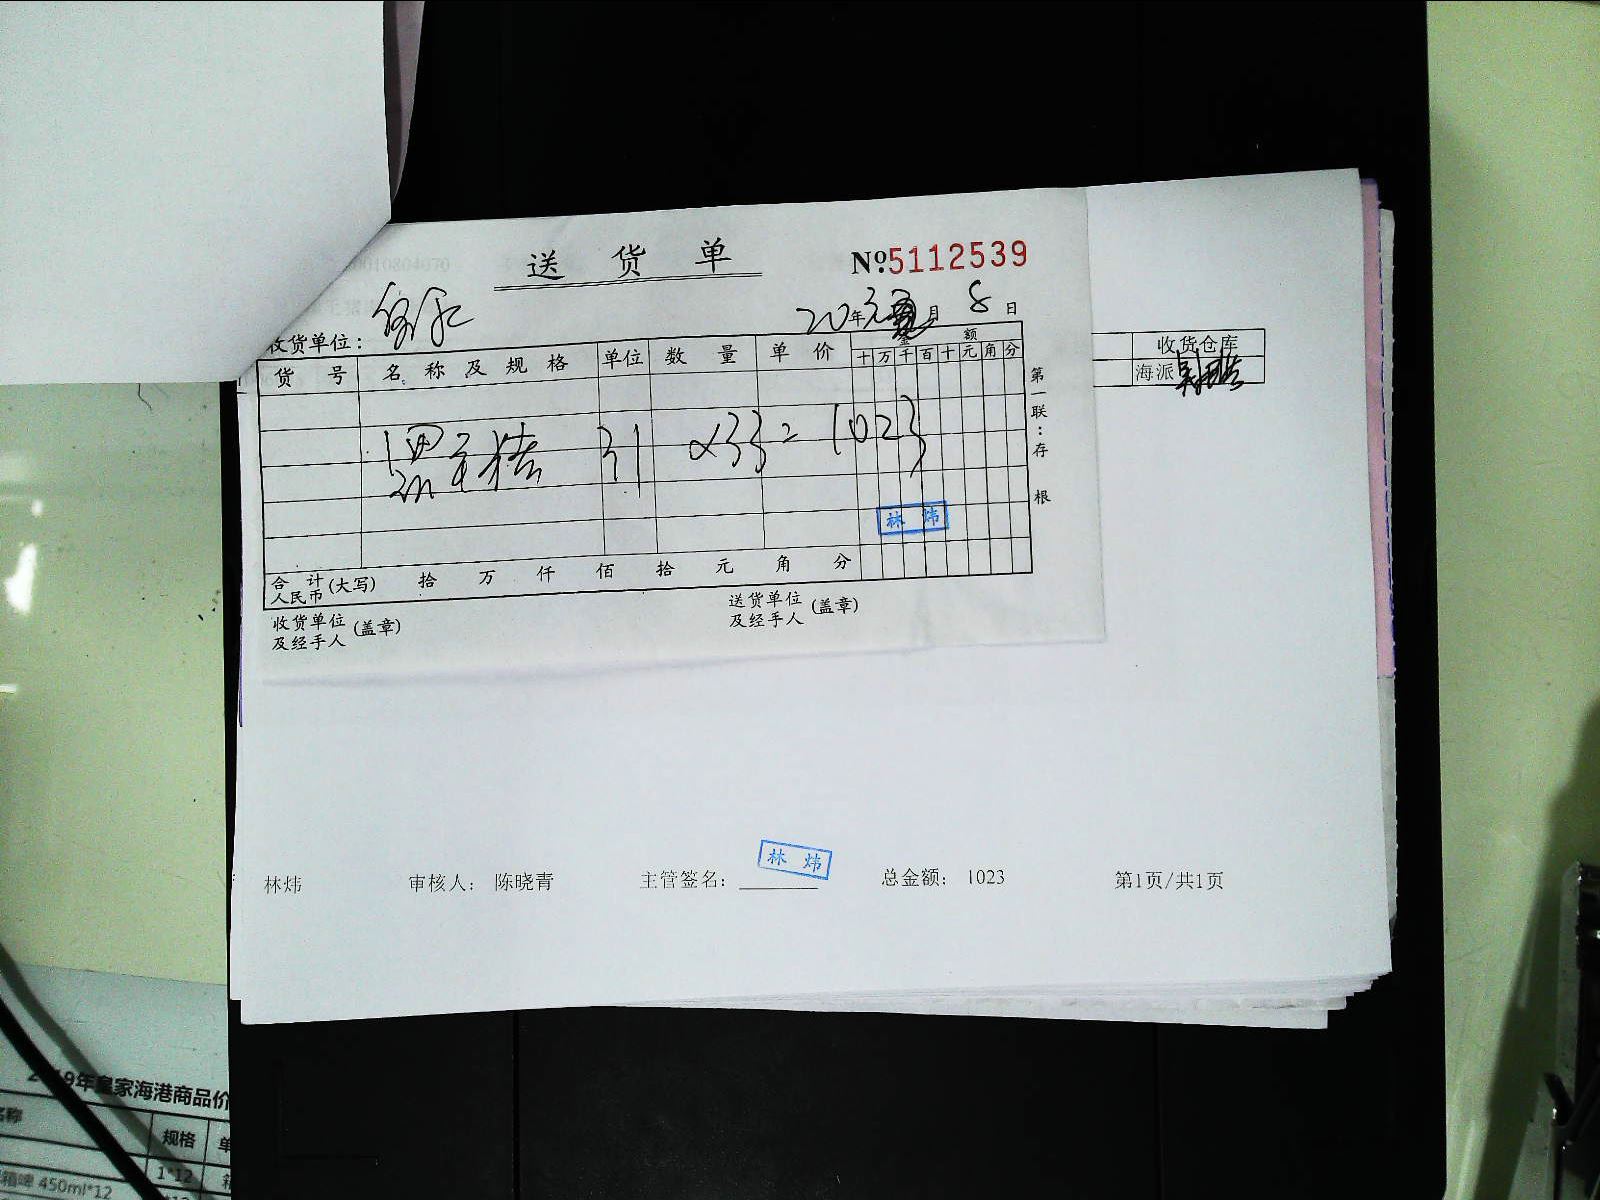 送 货 单
Nº5112539
收货单位：
20年 元月 8日
货 号 名 称 及 规 格 单位 数 量 单 价 金 额
十 万 千 百 十 元 角 分
黑毛猪 31 ×33= 1023
林 炜
合 计 人民币 (大写) 拾 万 仟 佰 拾 元 角 分
收货单位 及经手人 (盖章)
送货单位 及经手人 (盖章)
第一联：存 根
收货仓库
海派
林 炜
林炜 审核人： 陈晓青 主管签名： 总金额： 1023 第1页/共1页
9年皇家海港商品价
名称 规格 单
箱啤 450ml*12 1*12 箱